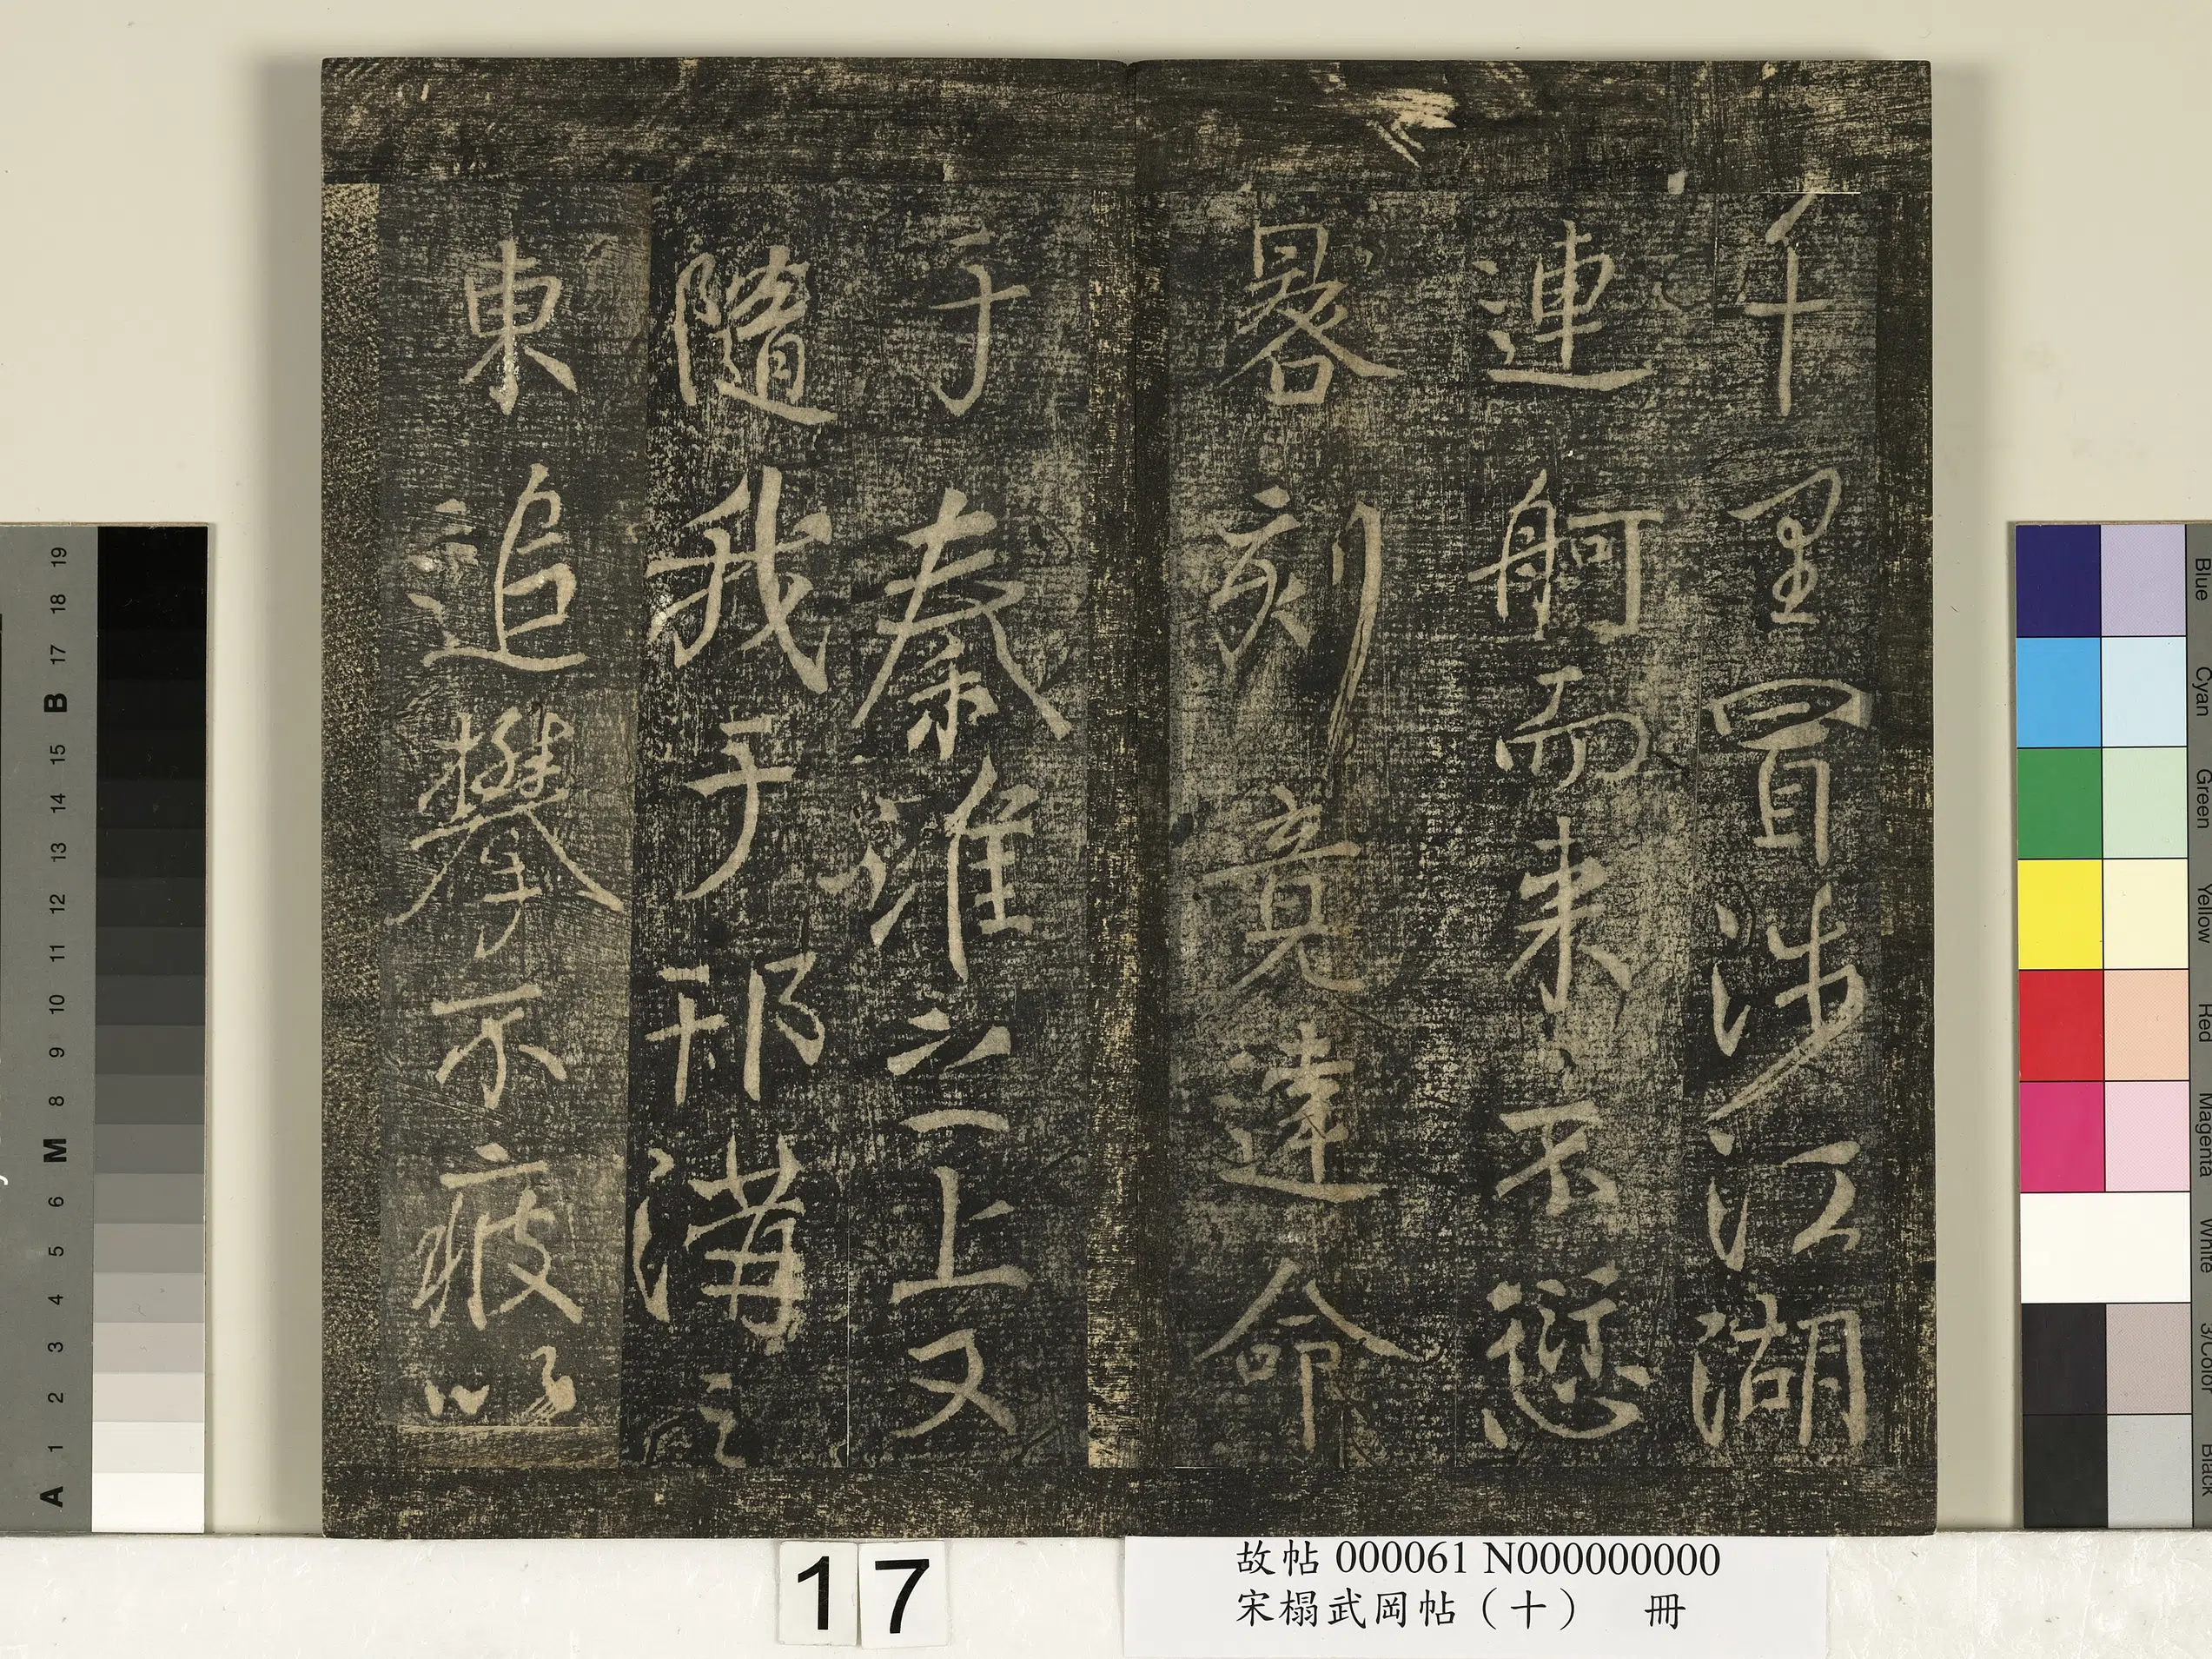 千里冒涉江湖
連舸而来不愆
晷刻竟達命
于秦淮之上又
隨我于邗溝之
東追攀不疲以
故帖 000061 N000000000
宋榻武岡帖（十） 冊
17
19
18
17
B
15
14
13
12
11
10
9
8
M
6
5
4
3
2
1
A
Blue
Cyan
Green
Yellow
Red
Magenta
White
3/Color
Black